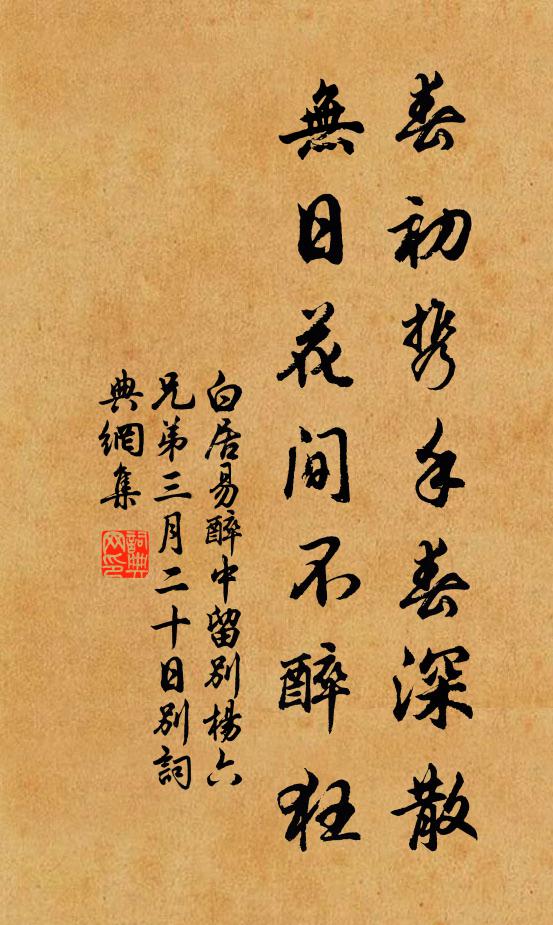 春初携手春深散
無日花間不醉狂
白居易醉中留別楊六
兄弟三月二十日別詞
典網集
詞典网印